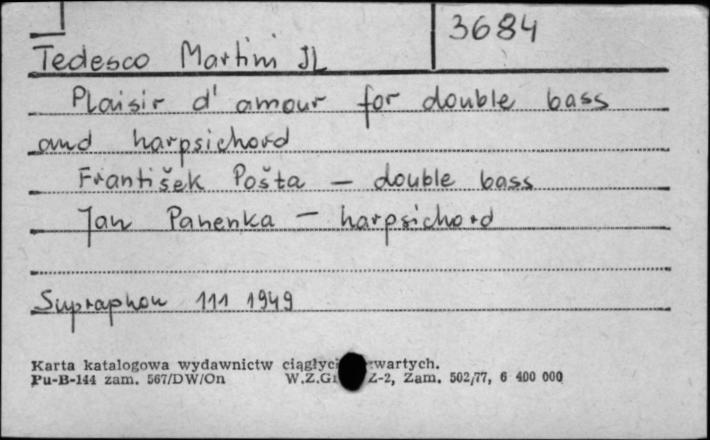 3684
Tedesco Martini JL
Plaisir d' amour for double bass
and harpsichord
František Pošta — double bass
Jan Panenka — harpsichord
Supraphon 111 1949
Karta katalogowa wydawnictw ciągłyc wartych.
Pu-B-144 zam. 567/DW/On W.Z.G Z-2, Zam. 502/77, 6 400 000